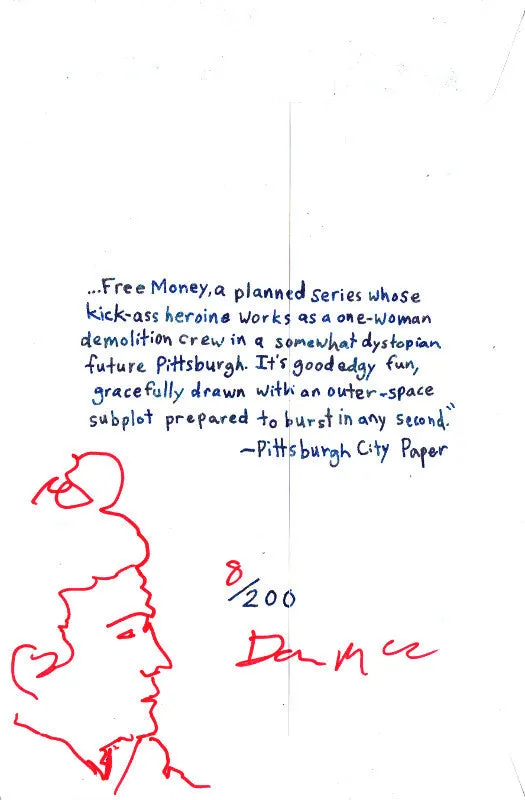 ...Free Money, a planned series whose
kick-ass heroine works as a one-woman
demolition crew in a somewhat dystopian
future Pittsburgh. It's good edgy fun,
gracefully drawn with an outer-space
subplot prepared to burst in any second."
~Pittsburgh City Paper
8/200